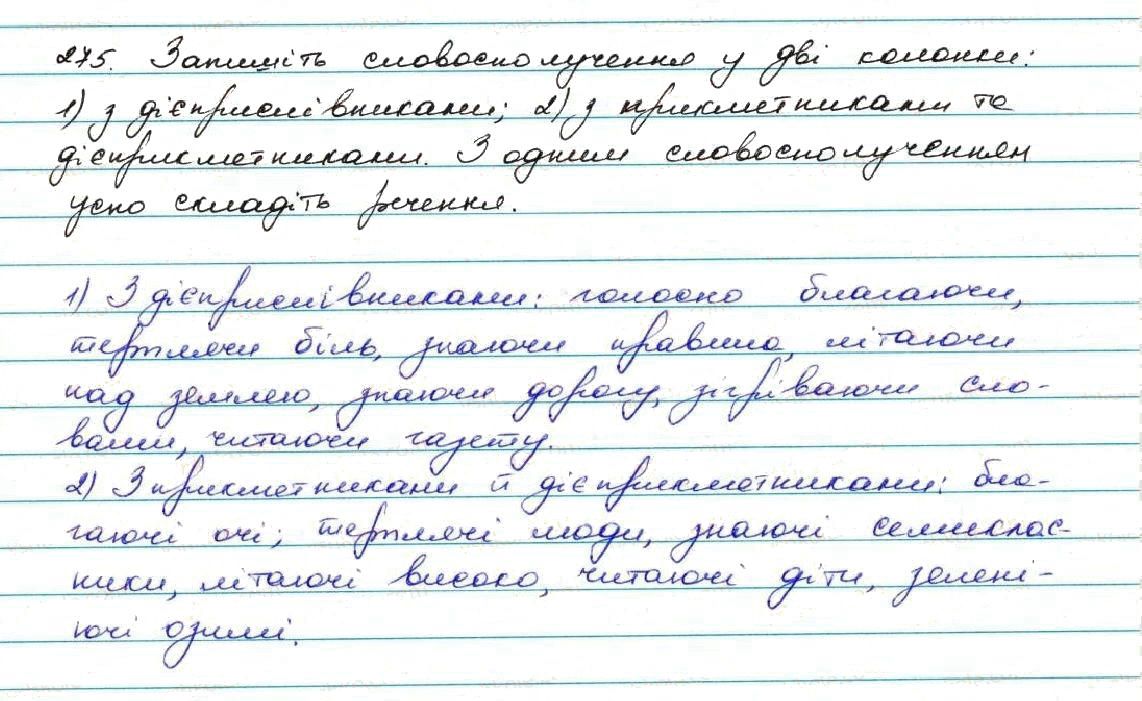 275. Запишіть словосполучення у дві колонки:
1) з дієприслівниками; 2) з прикметниками та
дієприкметниками. З одним словосполученням
усно складіть речення.
1) З дієприслівниками: голосно благаючи,
терплячи біль, знаючи правила, літаючи
над землею, знаючи дорогу, зігріваючи сло-
вами, читаючи газету.
2) З прикметниками й дієприкметниками: бла-
гаючі очі; терплячі люди, знаючі семиклас-
ники, літаючі високо, читаючі діти, зелені-
ючі озимі.